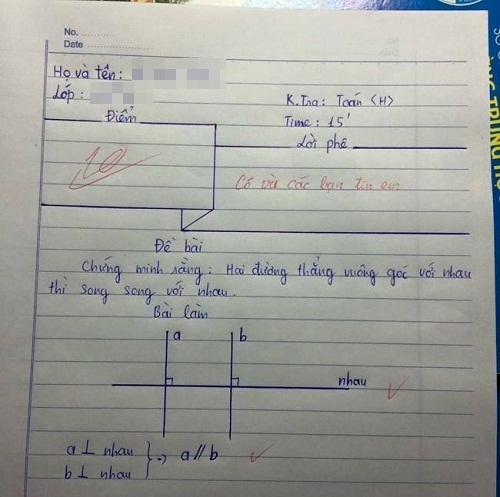 No.
Date
Họ và tên:
Lớp:
K.Tra: Toán <H>
Điểm
Time: 15'
Lời phê
10
Cô và các bạn tin em
Đề bài
Chứng minh rằng: Hai đường thẳng vuông góc với nhau
thì song song với nhau.
Bài làm
a b
nhau
a ⊥ nhau
b ⊥ nhau } => a // b